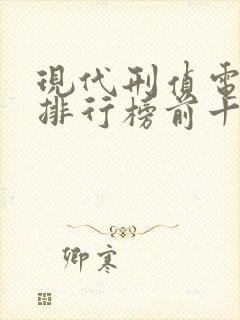 現代刑偵電
排行榜前十
卿寒